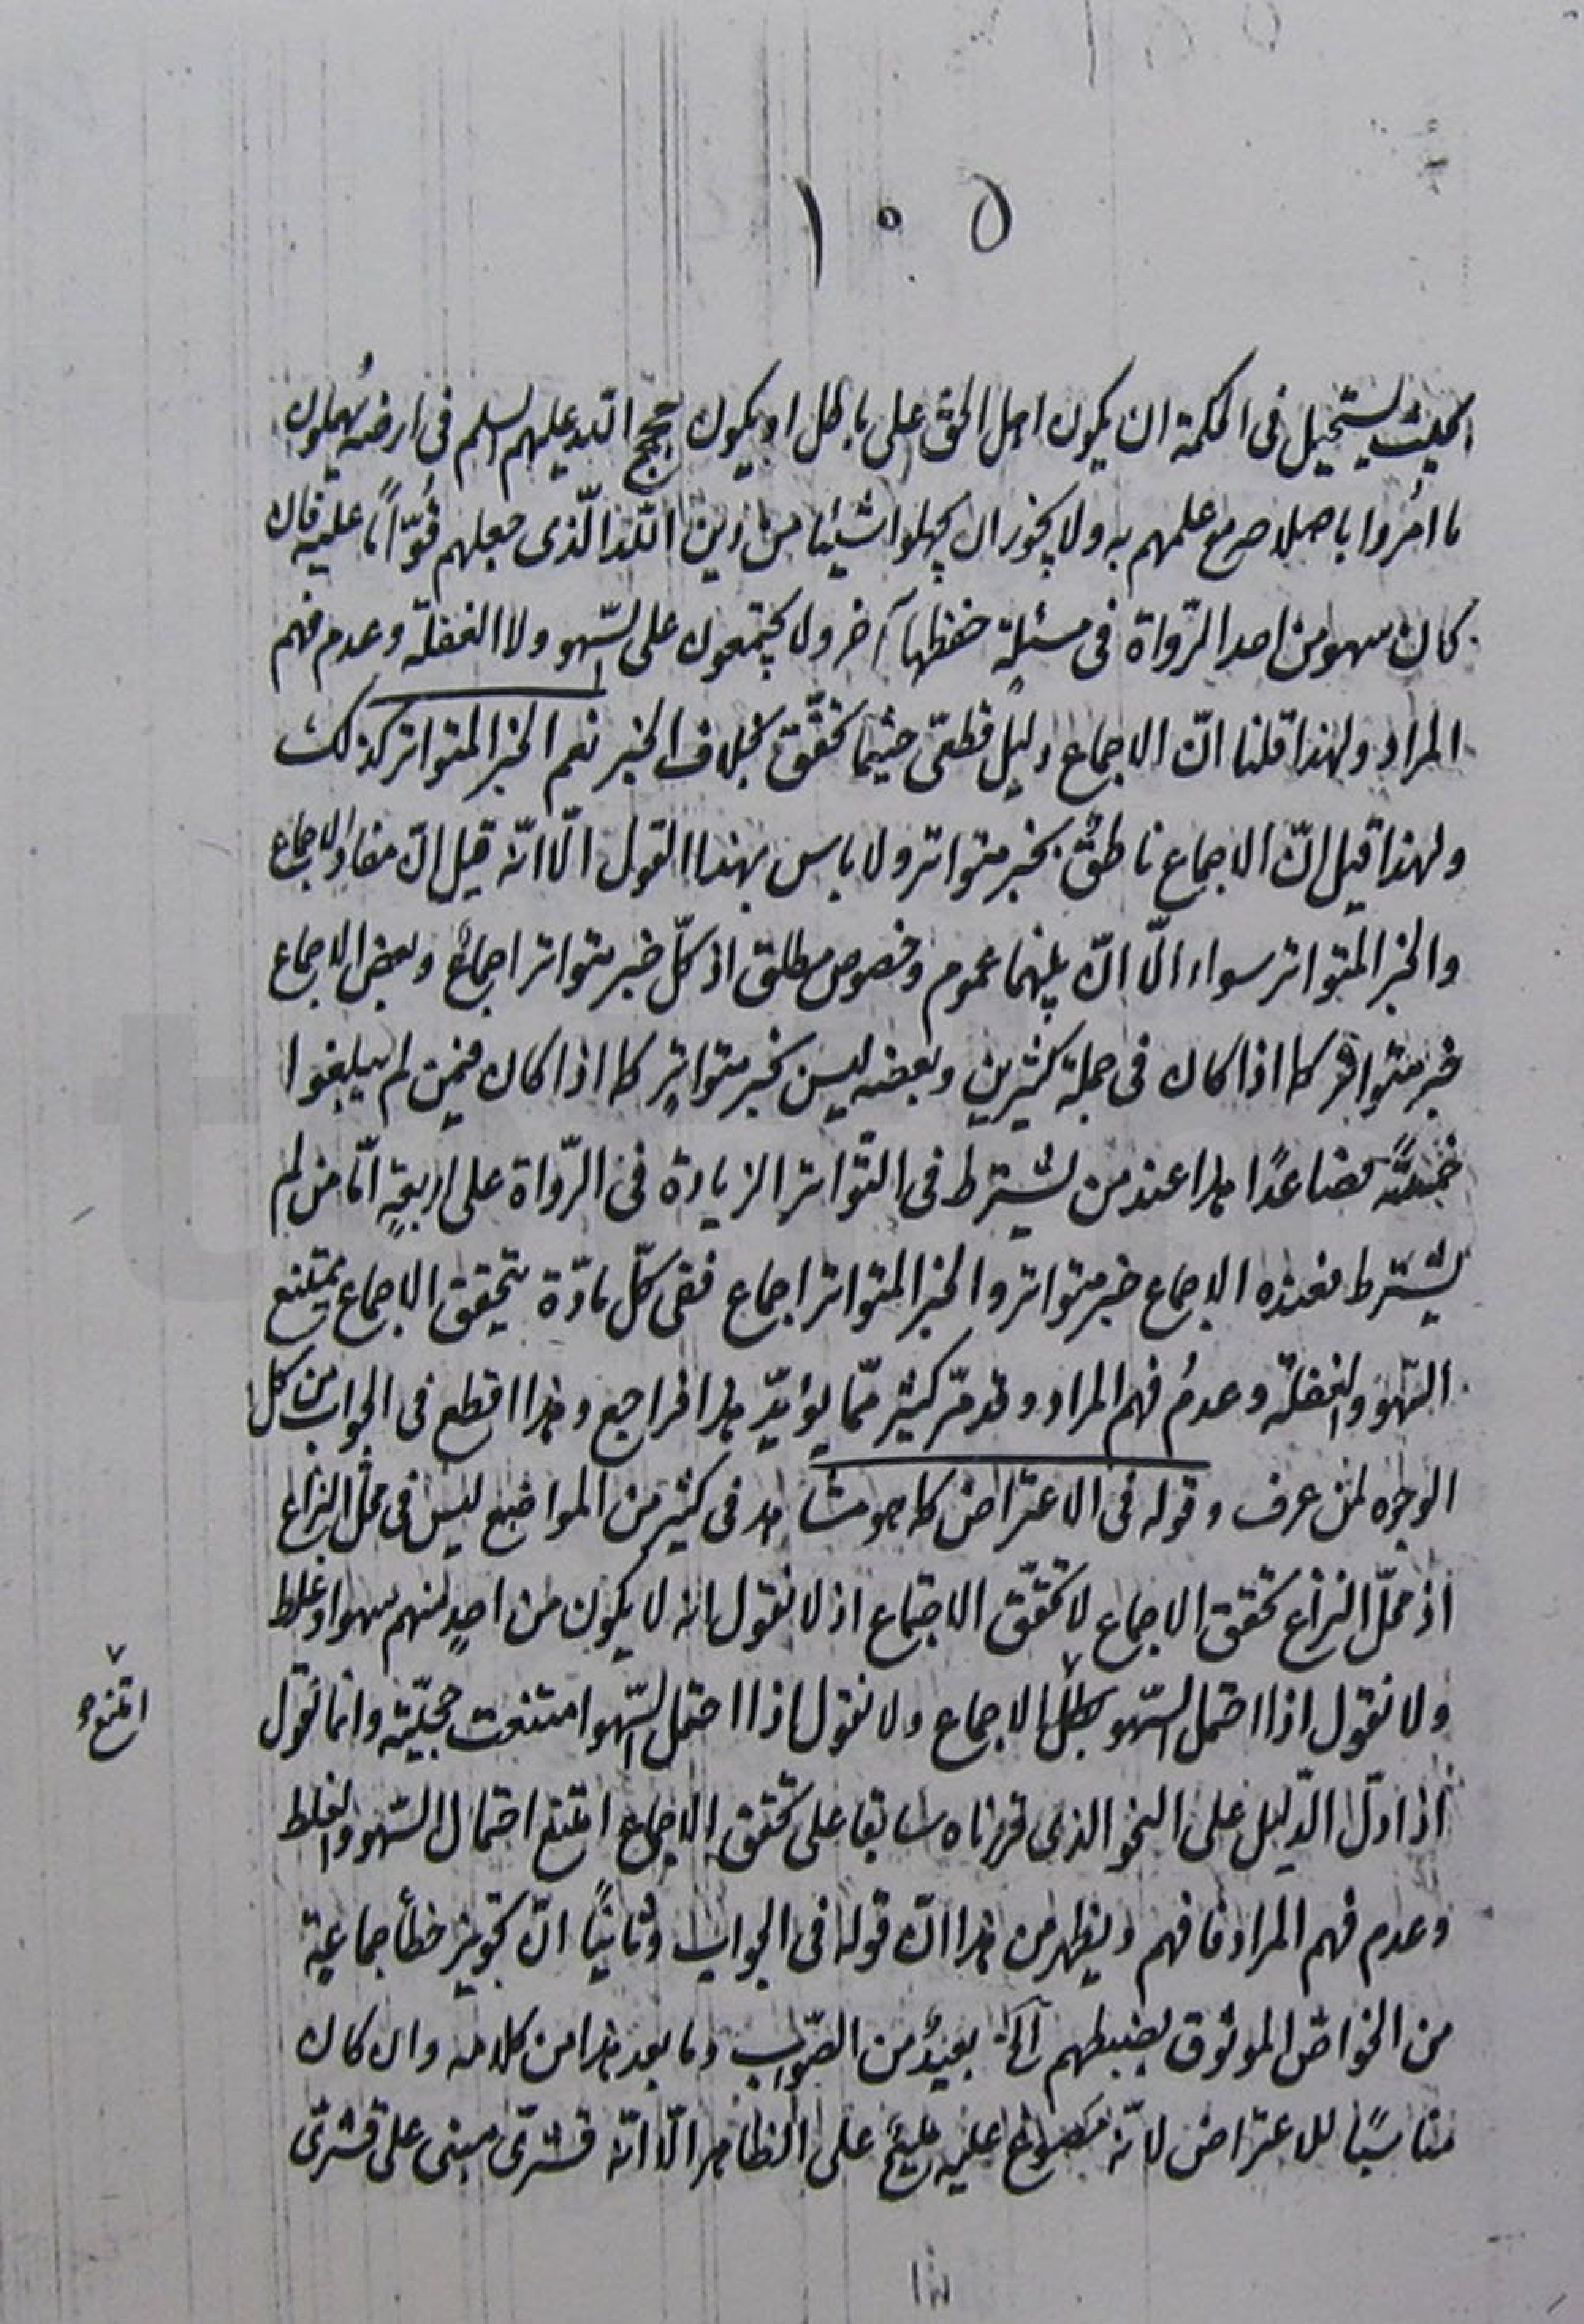 ١٠٥
بحيث يستحيل فى الحكمة ان يكون اهل الحق على باطل او يكون حجج الله عليهم السلم فى ارضه يُهملون
ما اُمُروا باصلاحه مع علمهم به ولا يجوز ان يجهلوا شيئا من دين اللّه الّذى جعلهم قُوّاماً عليه فان
كان سهو من احد الرّواة فى مسئلة حفظها آخر ولا يجتمعون على السّهو ولا الغفلة وعدم فهم
المراد ولهذا قلنا انّ الاجماع دليل قطعىّ حيثما تحقّق بخلاف الخبر نعم الخبر المتواتر كذلك
ولهذا قيل انّ الاجماع ناطقٌ بخبر متواتر ولا باس بهذا القول الّا انّه قيل انّ مفاد الاجماع
والخبر المتواتر سواء الّا انّ بينهما عموم وخصوص مطلق اذ كلّ خبر متواتر اجماعٌ وبعض الاجماع
خبر متواتر كما اذا كان فى جملة كثيرين وبعضه ليس بخبر متواتر كما اذا كان فيمن لم يبلغوا
خمسةً فصاعدًا هذا عند من يشترط فى التّواتر الزيادة فى الرّواة على اربعةٍ امّا من لم
يشترط فعنده الاجماع خبر متواتر والخبر المتواتر اجماع ففى كلّ مادّة يتحقق الاجماع يمتنع
السّهو والغفلة وعدمُ فهم المراد وقد مرّ كثير ممّا يؤيّد هذا فراجع وهذا اقطع فى الجواب من كل
الوجوه لمن عرف وقوله فى الاعتراض كما هو مشاهد فى كثير من المواضع ليس فى محلّ النزاع
اذ محلّ النزاع تحقق الاجماع لا تحقّق الاجتماع اذ لا نقول انه لا يكون من احدٍ منهم سهو او غلط
ولا نقول اذا احتمل السّهو بطل الاجماع ولا نقول اذا احتمل السّهو امتنعت حجيّته وانما نقول
اذا دلّ الدّليل على النحو الذى قررناه سابقا على تحقق الاجماع امتنع احتمال السّهو والغلط
امتنع
وعدم فهم المراد فافهم ويظهر من هذا انّ قوله فى الجواب وثانيًا انّ تجويز خطأ جماعة
من الخواصّ الموثوق بضبطهم آلخ بعيدٌ من الصّواب وما بعد هذا من كلامه وان كان
مناسبًا للاعتراض لانّه مصوغ عليه مليحٌ على الظاهر الّا انّه قشرىّ مبنى على قشرىّ